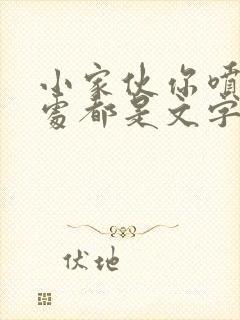 小家伙你噴
處都是文字
伏地